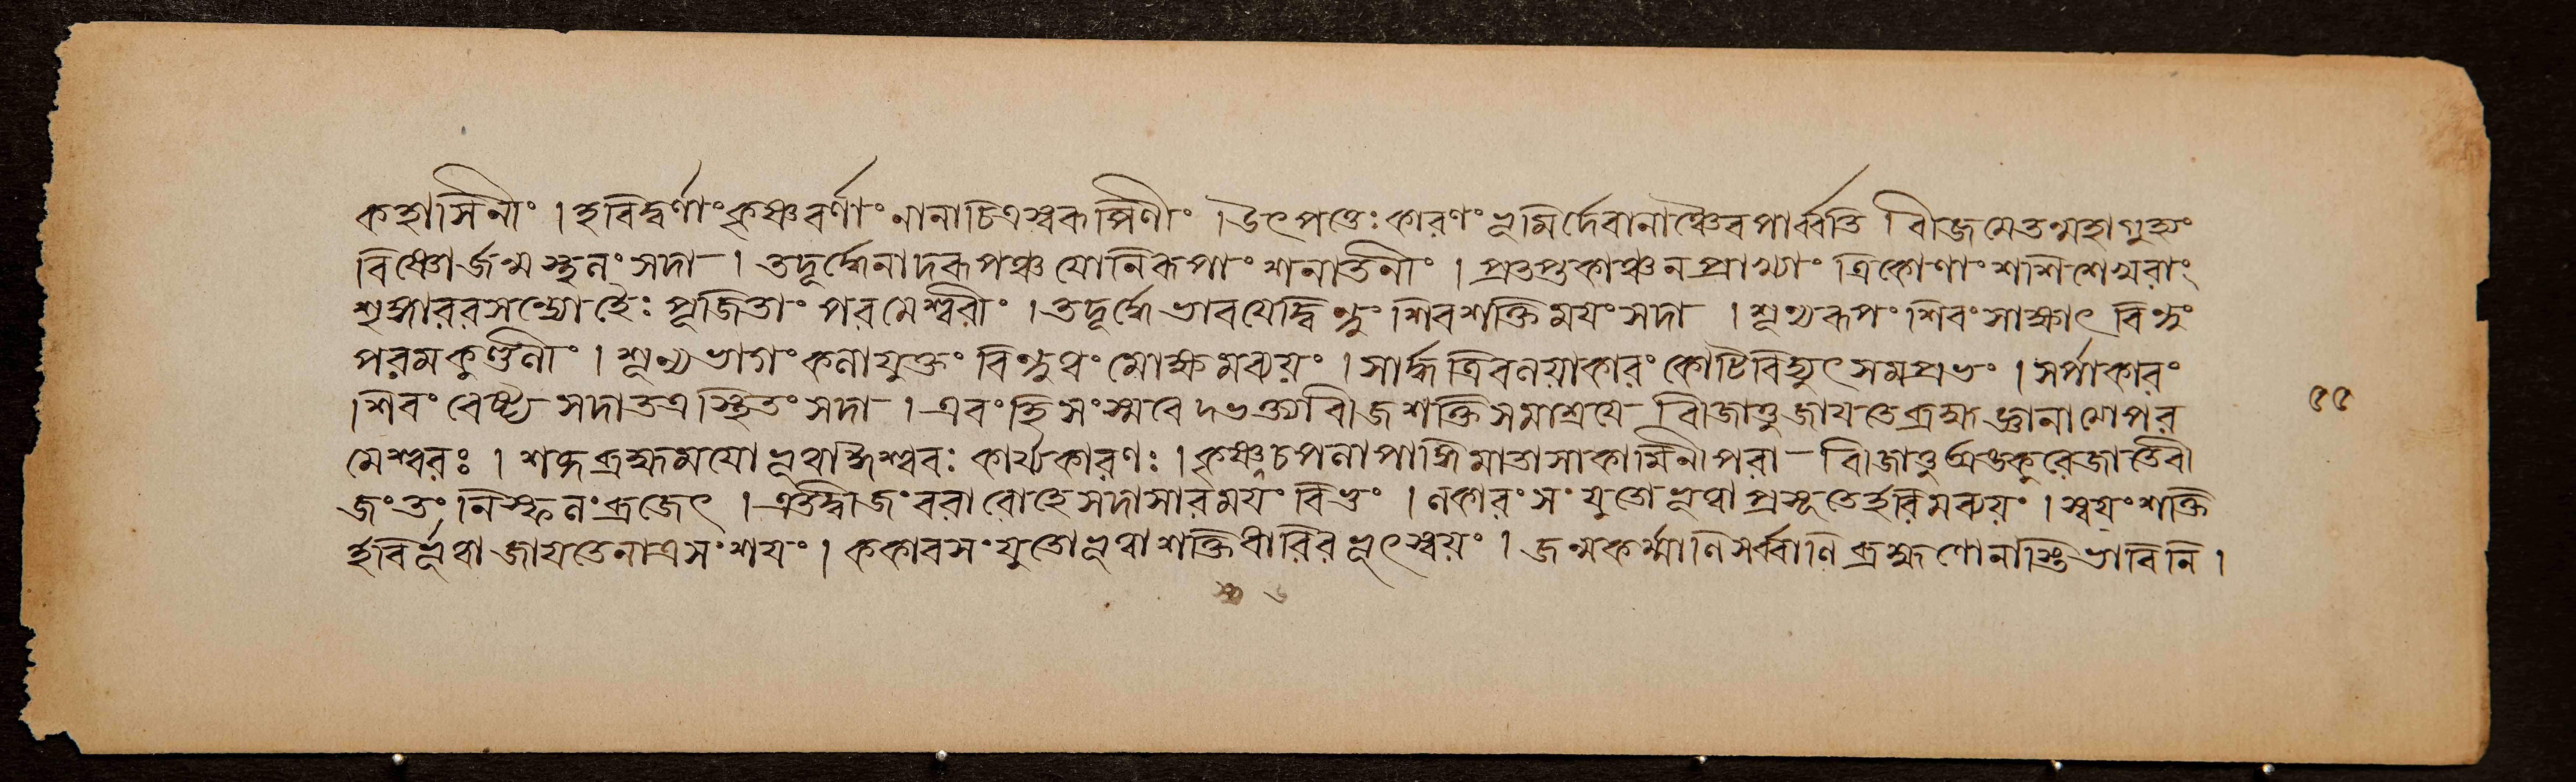 কহাসিনীং । হরিদ্বর্ণাং কৃষ্ণবর্ণাং নানাচিত্রস্বরূপিণীং । উৎপত্তেঃ কারণং ভূমির্দেবানাঞ্চৈব পার্ব্বতি । বীজমেতন্মহাগুহ্যং
বিষ্ণোর্জন্মস্থলং সদা । তদূর্দ্ধে নাদরূপঞ্চ যোনিরূপাং শনাতনীং । প্রতপ্তকাঞ্চনপ্রাখ্যাং ত্রিকোণাং শশিশেখরাং
শৃঙ্গাররসসন্দোহৈঃ পূজিতাং পরমেশ্বরীং । তদূর্দ্ধে ভাবয়েদ্বিন্দুং শিবশক্তিময়ং সদা । শূন্যরূপং শিবং সাক্ষাৎ বিন্দুং
পরমকুণ্ডলীং । শূন্যভাগং কলাযুক্তং বিন্দুথং মোক্ষমব্যয়ং । সার্দ্ধত্রিবলয়াকারং কোটিবিদ্যুৎসমপ্রভং । সর্পাকারং
শিবং বেষ্ট্য সদা তত্র স্থিতং সদা । এবং হি সংস্মরেদভক্ত্যা বীজশক্তিসমাশ্রয়ে বীজাত্তু জায়তে ব্রহ্ম জ্ঞানাত্মা পর
মেশ্বরঃ । শব্দব্রহ্মময়ো ভূত্বা ঈশ্বরঃ কার্য্যকারণঃ । কৃষ্ণ চ পলাপাঙ্গি মাতা সা কামিনী পরা বীজাত্তু অঙ্কুরে জাতে বী
জং তং নিস্ফলং ব্রজেৎ । এতদ্বীজং বরারোহে সদা সারময়ং বিভং । লকারং সংযুতো ভূত্বা প্রসূতে হরিমব্যয়ং । স্বয়ং শক্তি
র্হরির্ভূত্বা জায়তে নাত্র সংশয়ং । ককারসংযুতো ভূত্বা শক্তিধারিরভূৎ স্বয়ং । জন্মকর্ম্মাণি সর্ব্বাণি ব্রহ্মণো নাস্তি ভাবিনি ।
৫৫